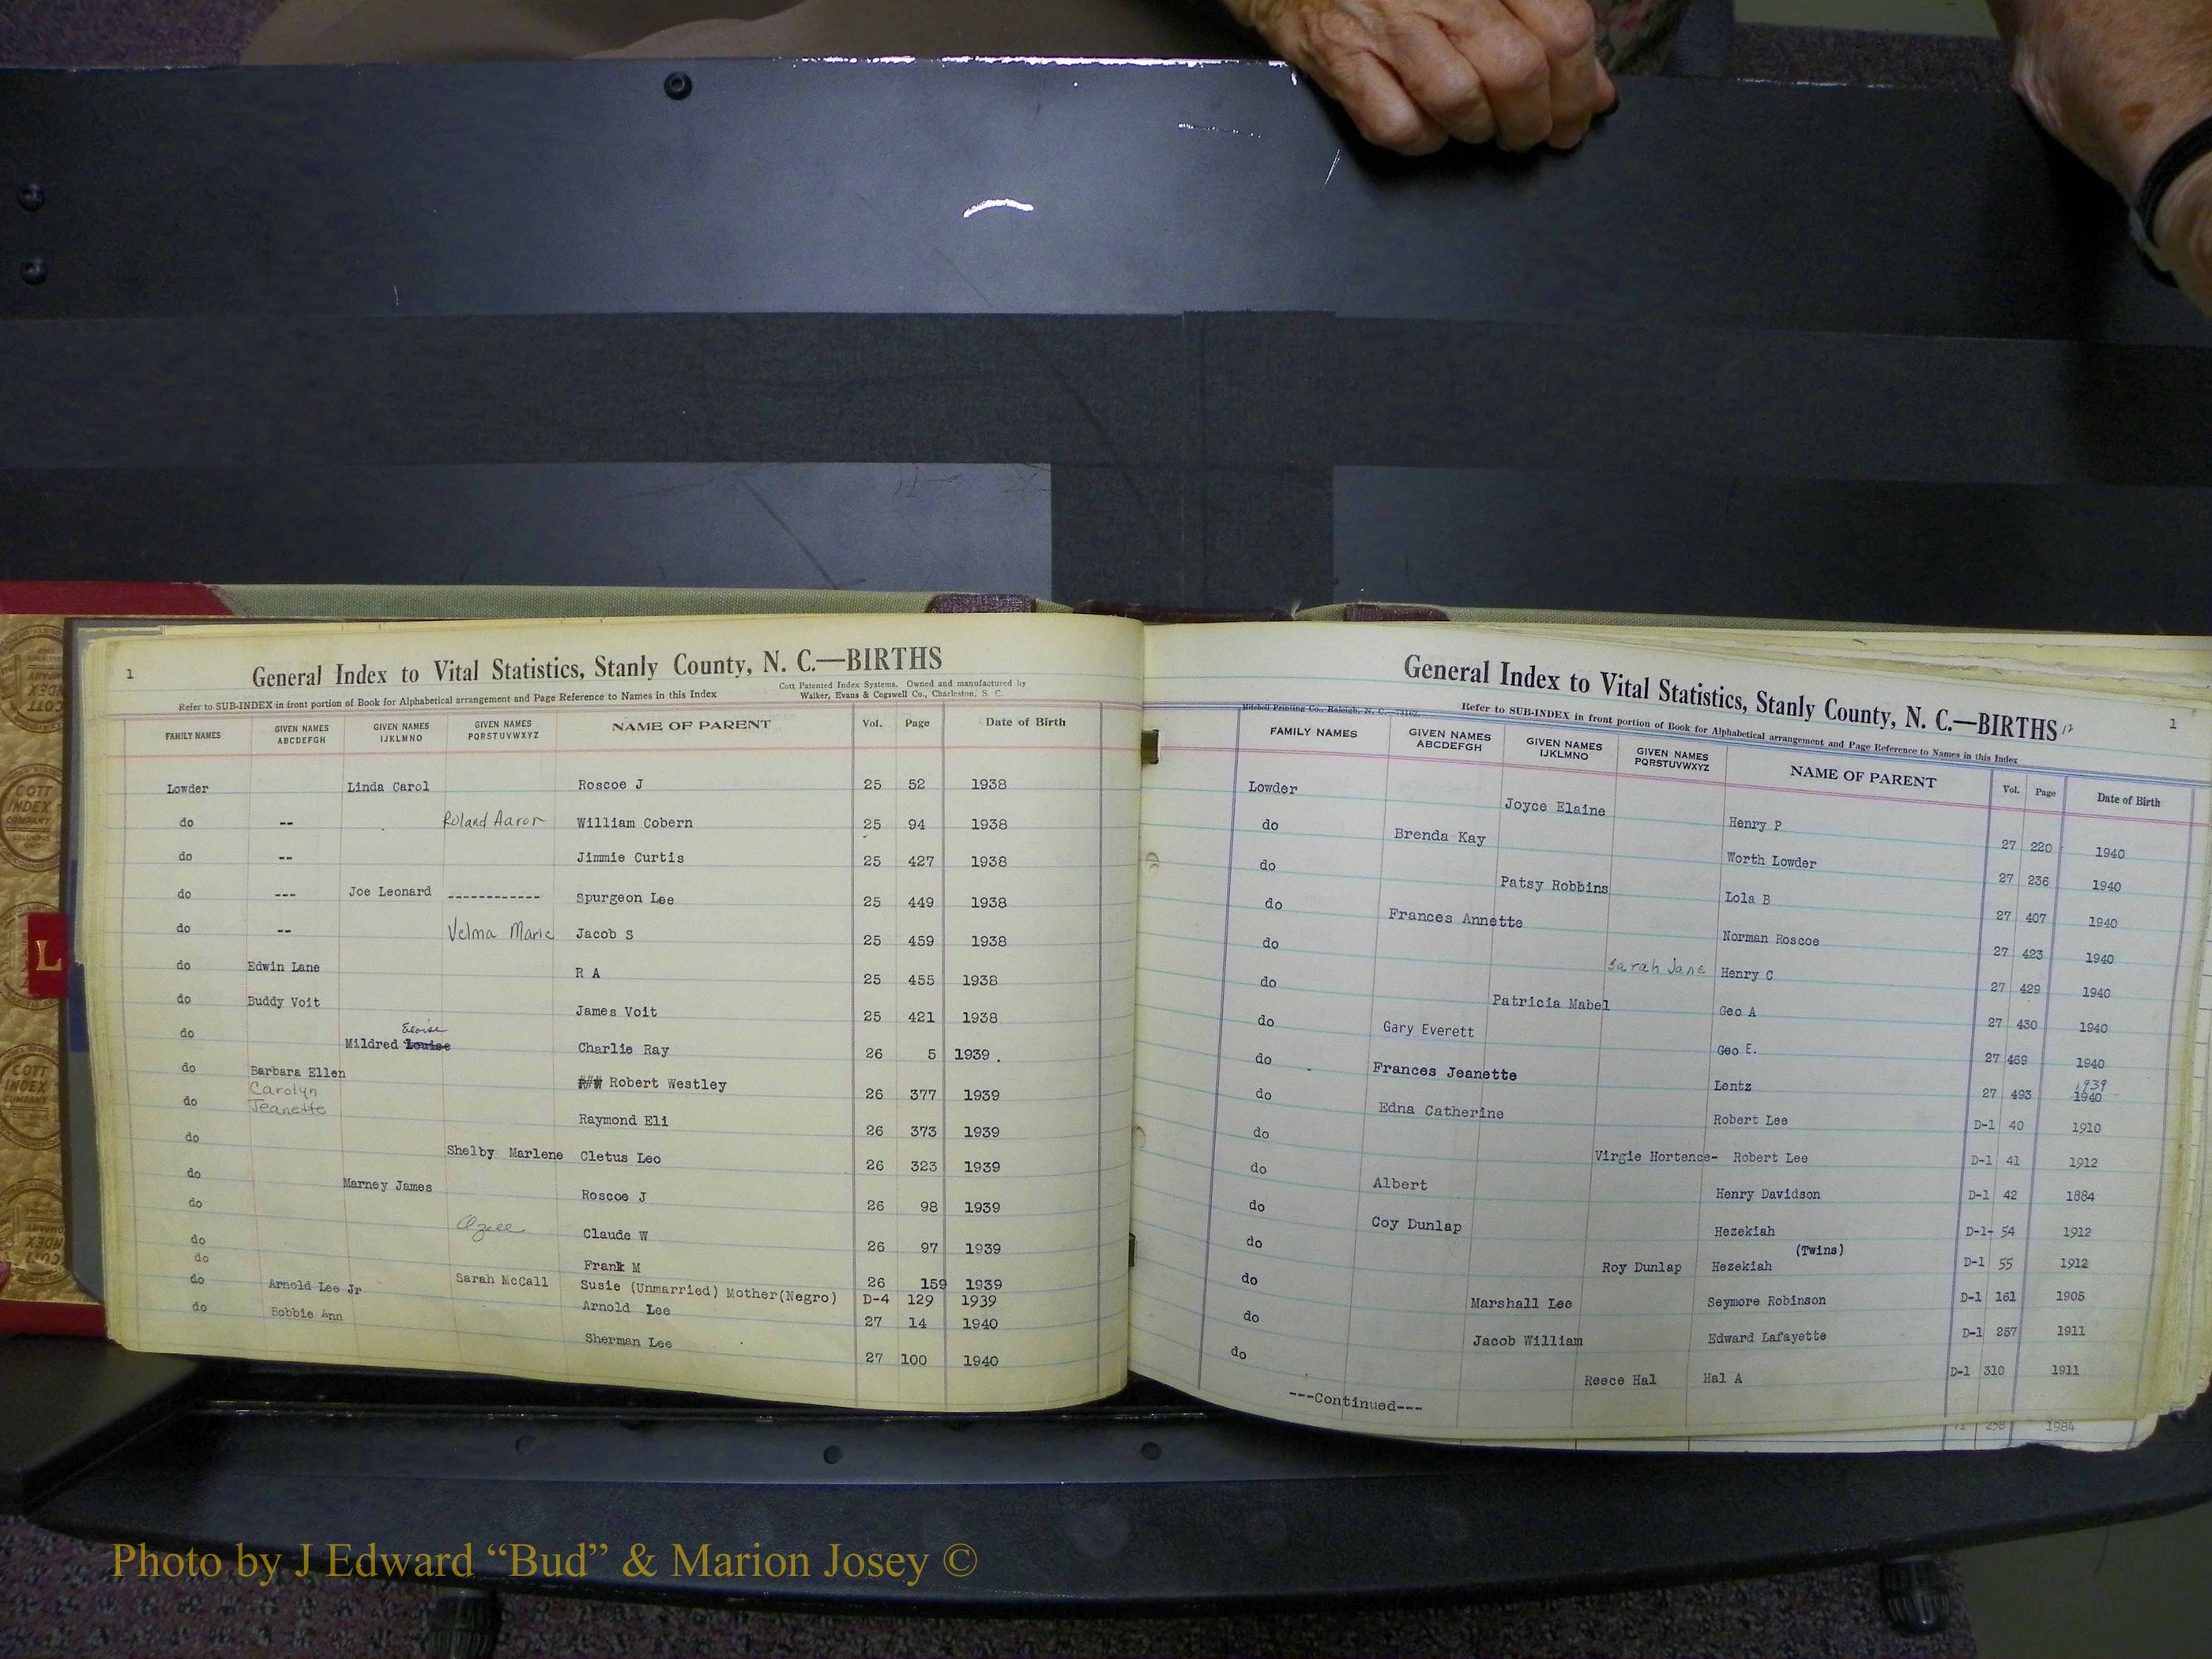 1
General Index to Vital Statistics, Stanly County, N. C.—BIRTHS
Refer to SUB-INDEX in front portion of Book for Alphabetical arrangement and Page Reference to Names in this Index
Cott Patented Index Systems. Owned and manufactured by
Walker, Evans & Cogswell Co., Charleston, S. C.
FAMILY NAMES GIVEN NAMES ABCDEFGH GIVEN NAMES IJKLMNO GIVEN NAMES PQRSTUVWXYZ NAME OF PARENT Vol. Page Date of Birth
Lowder Linda Carol Roscoe J 25 52 1938
do -- Roland Aaron William Cobern 25 94 1938
do -- Jimmie Curtis 25 427 1938
do --- Joe Leonard ------------ Spurgeon Lee 25 449 1938
do -- Velma Marie Jacob S 25 459 1938
do Edwin Lane R A 25 455 1938
do Buddy Voit James Voit 25 421 1938
Eloise
do Mildred Louise Charlie Ray 26 5 1939 .
do Barbara Ellen ### Robert Westley 26 377 1939
do Carolyn Jeanette Raymond Eli 26 373 1939
do Shelby Marlene Cletus Leo 26 323 1939
do Marney James Roscoe J 26 98 1939
do Ozell Claude W 26 97 1939
do Frank M 26 159 1939
do Sarah McCall Susie (Unmarried) Mother(Negro) D-4 129 1939
do Arnold Lee Jr Arnold Lee 27 14 1940
do Bobbie Ann Sherman Lee 27 100 1940
L
General Index to Vital Statistics, Stanly County, N. C.—BIRTHS 12
1
Mitchell Printing Co., Raleigh, N. C.
Refer to SUB-INDEX in front portion of Book for Alphabetical arrangement and Page Reference to Names in this Index
FAMILY NAMES GIVEN NAMES ABCDEFGH GIVEN NAMES IJKLMNO GIVEN NAMES PQRSTUVWXYZ NAME OF PARENT Vol. Page Date of Birth
Lowder Joyce Elaine Henry P 27 220 1940
do Brenda Kay Worth Lowder 27 236 1940
do Patsy Robbins Lola B 27 407 1940
do Frances Annette Norman Roscoe 27 423 1940
do Sarah Jane Henry C 27 429 1940
do Patricia Mabel Geo A 27 430 1940
do Gary Everett Geo E. 27 469 1940
do Frances Jeanette Lentz 27 493 1939 1940
do Edna Catherine Robert Lee D-1 40 1910
do Virgie Hortence- Robert Lee D-1 41 1912
do Albert Henry Davidson D-1 42 1884
do Coy Dunlap Hezekiah D-1- 54 1912
(Twins)
do Roy Dunlap Hezekiah D-1 55 1912
do Marshall Lee Seymore Robinson D-1 161 1905
do Jacob William Edward Lafayette D-1 257 1911
do Reece Hal Hal A D-1 310 1911
---Continued---
71 258 1984
COTT INDEX COMPANY
COTT INDEX COMPANY
Photo by J Edward “Bud” & Marion Josey ©